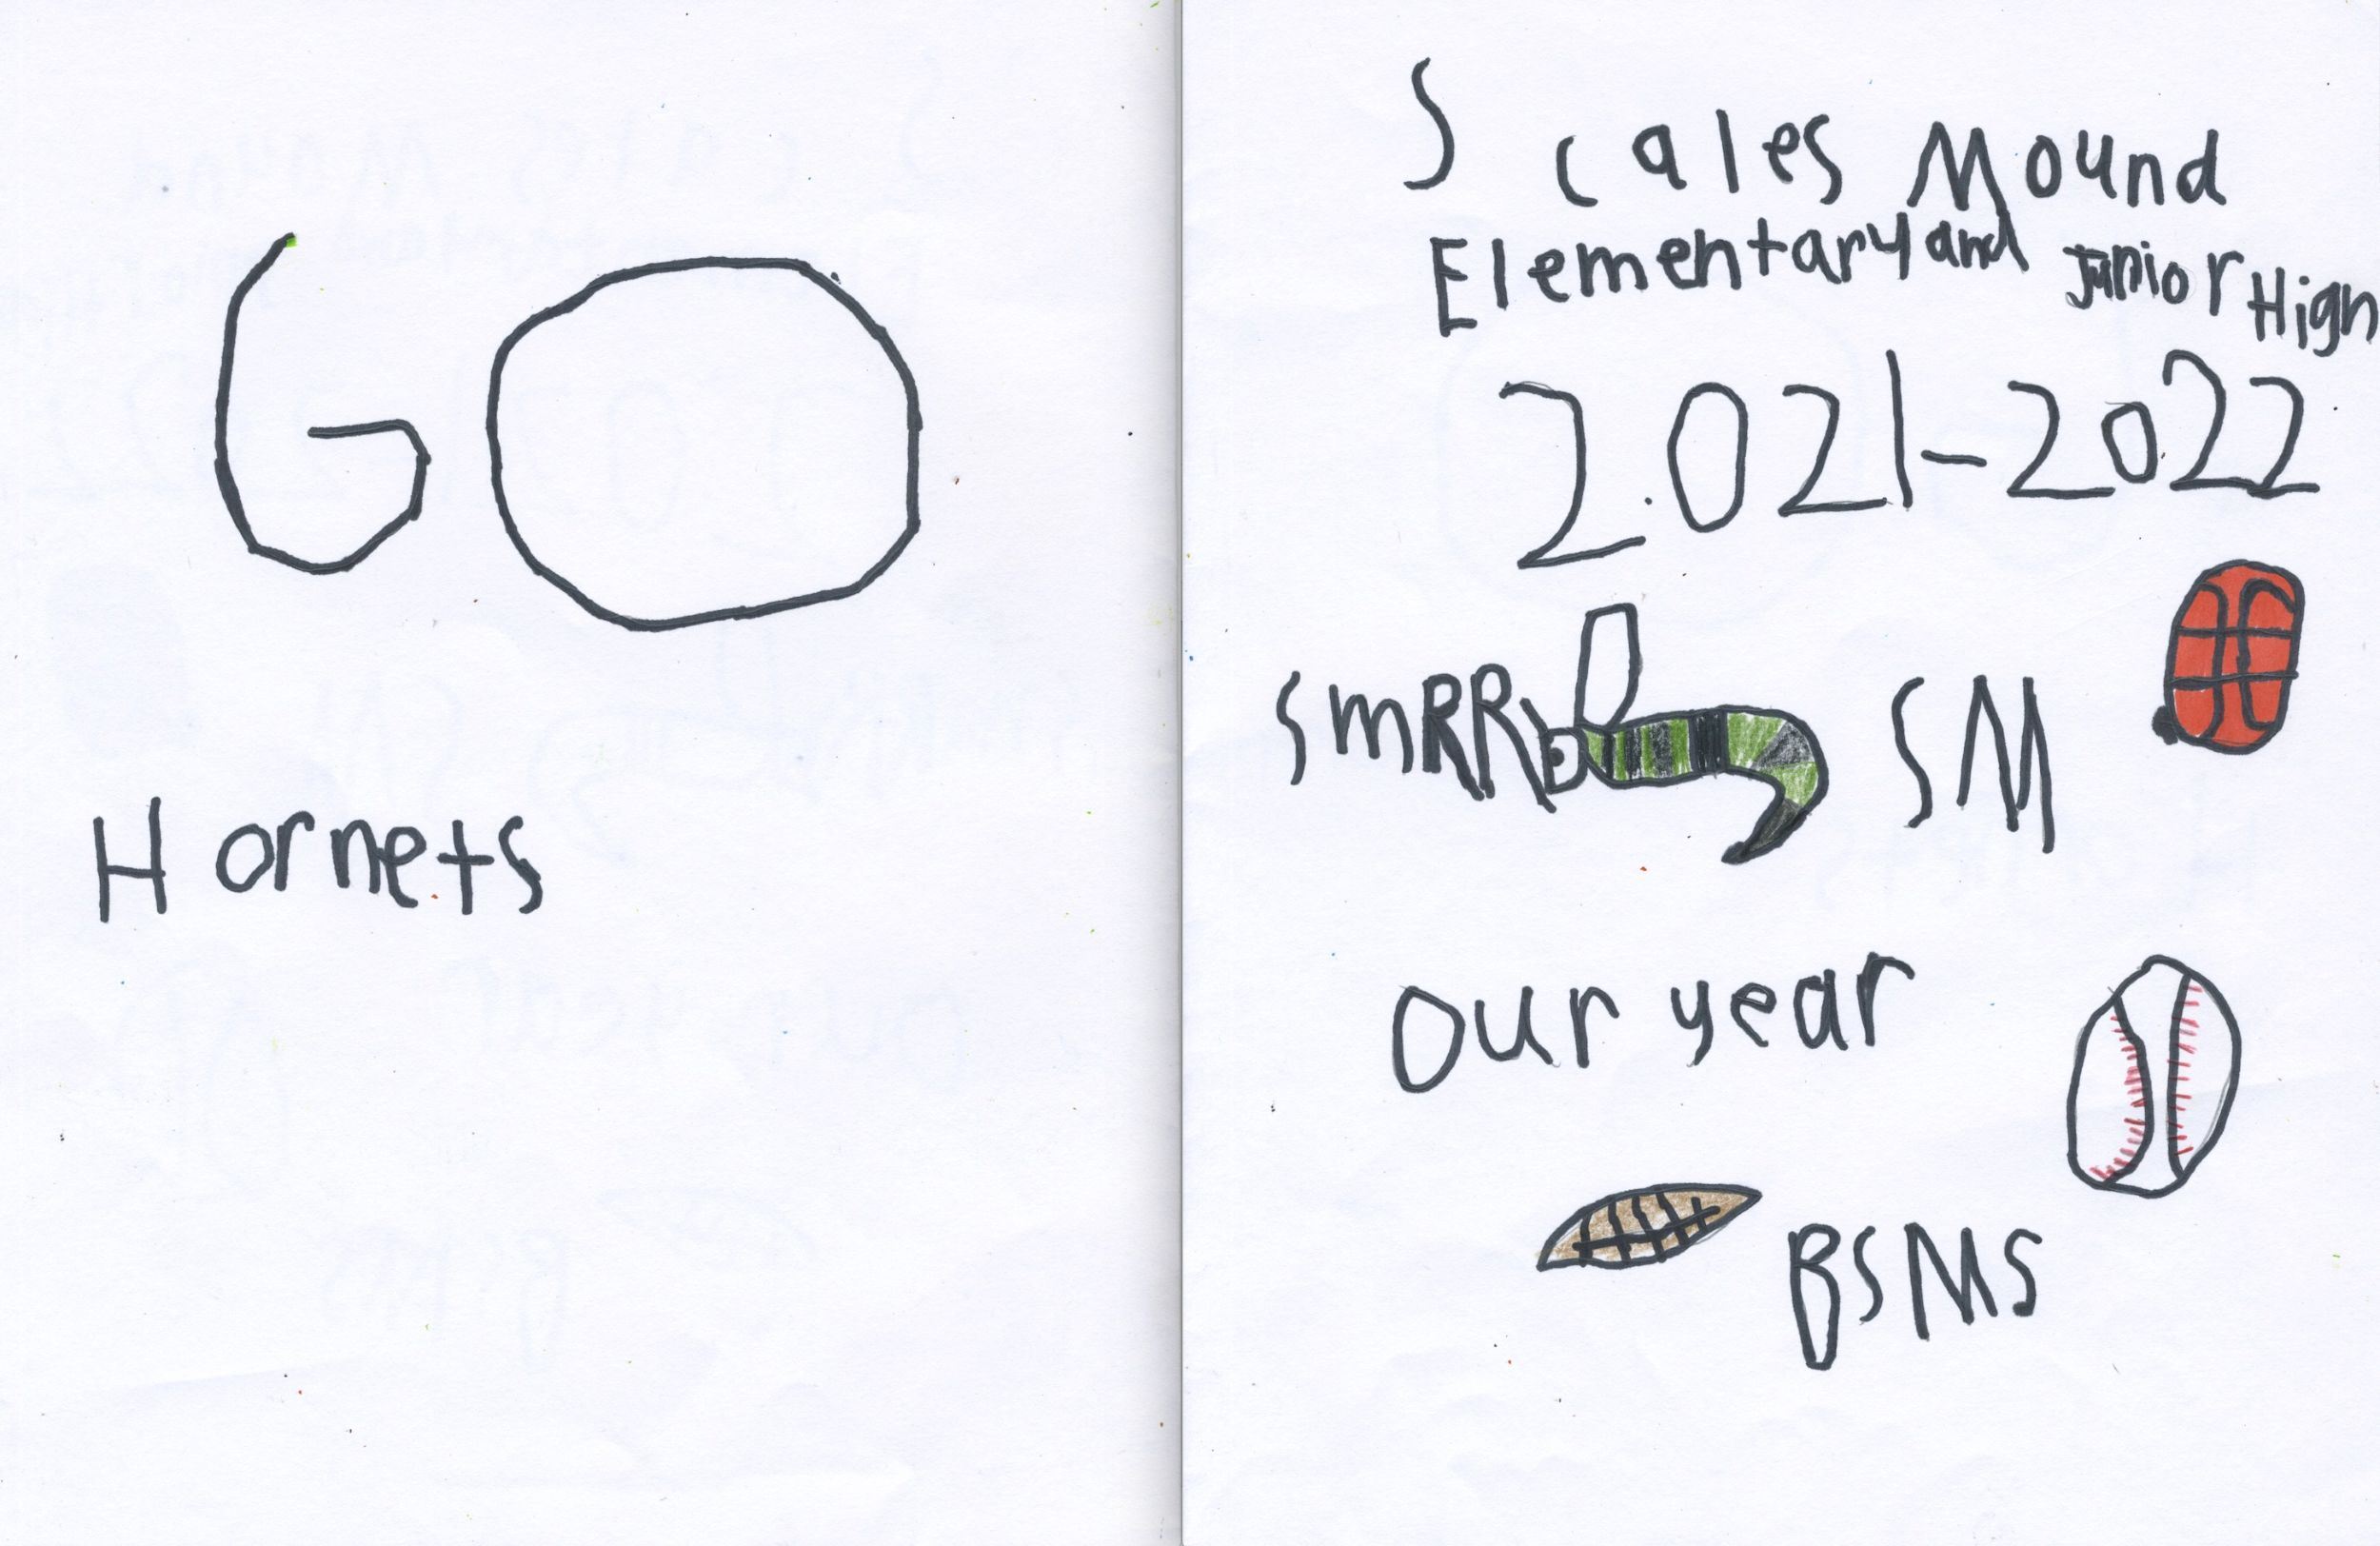 GO
Hornets
Scales Mound
Elementary and Junior High
2021-2022
SmRR SM
our year
BSMS